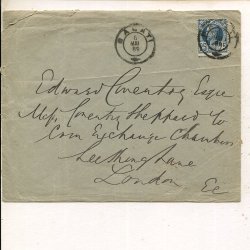 GALAŢI
6
MAI
86
Edward Coventry Esqre
Messrs Coventry Sheppard & Co
Corn Exchange Chambers
Seething Lane
London
Ec